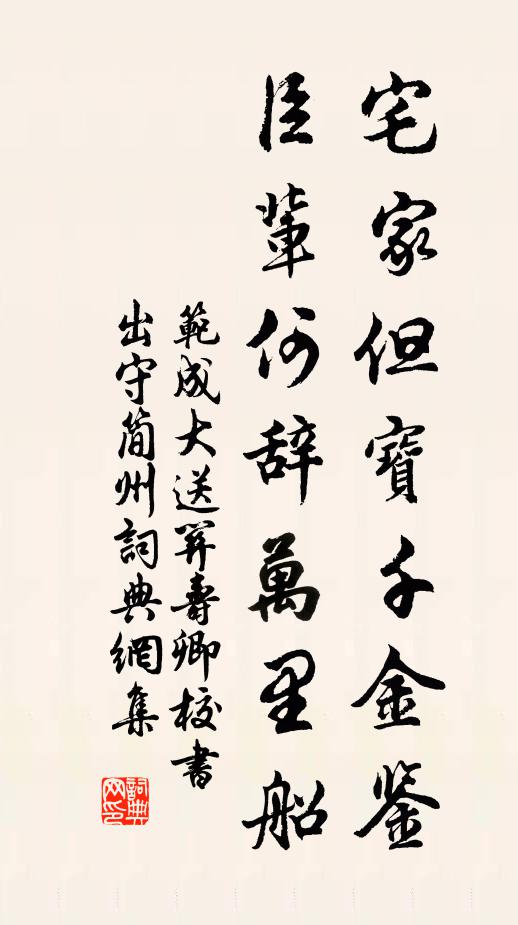 宅家但寶千金鉴
臣輩何辞萬里船
範成大送關壽卿校書
出守简州詞典網集
詞典网印